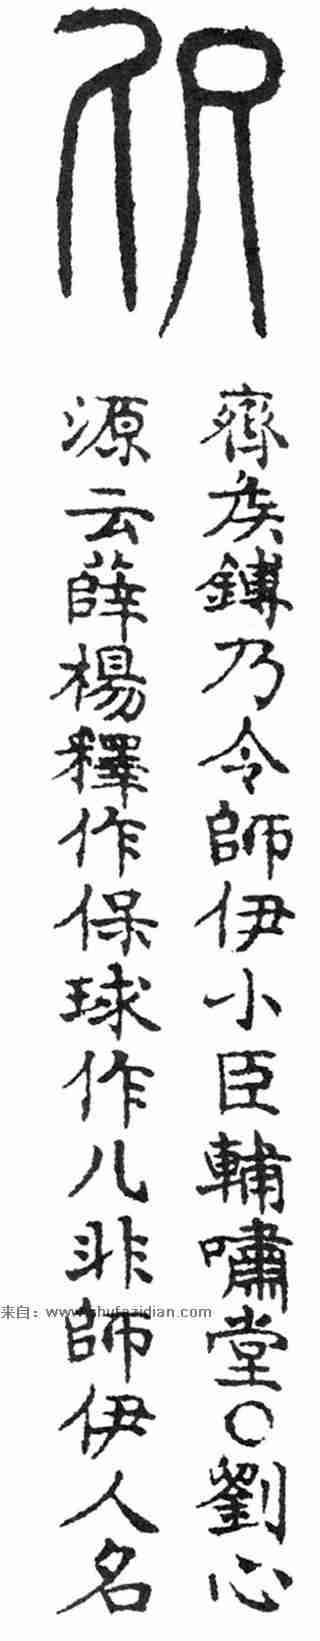 齊侯鎛乃令師伊小臣輔嘯堂○劉心
源云薛楊釋作保球作儿非師伊人名
来自：www.shufazidian.com